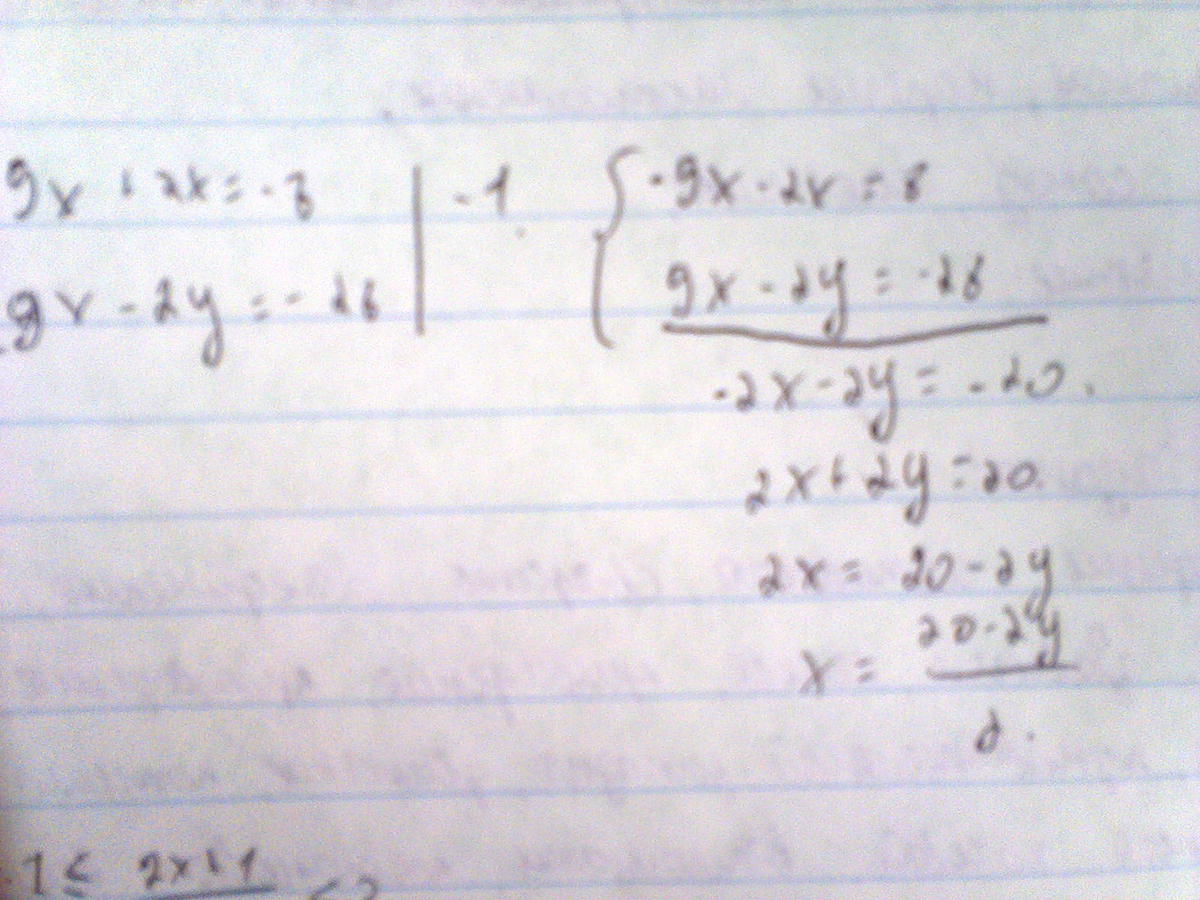 9x + 2x = -8 | -1. { -9x - 2x = 8
9x - 2y = - 28 9x - 2y = -28
-2x - 2y = -20.
2x + 2y = 20.
2x = 20 - 2y
x = 20 - 2y
2.
-1 ≤ 2x + 1